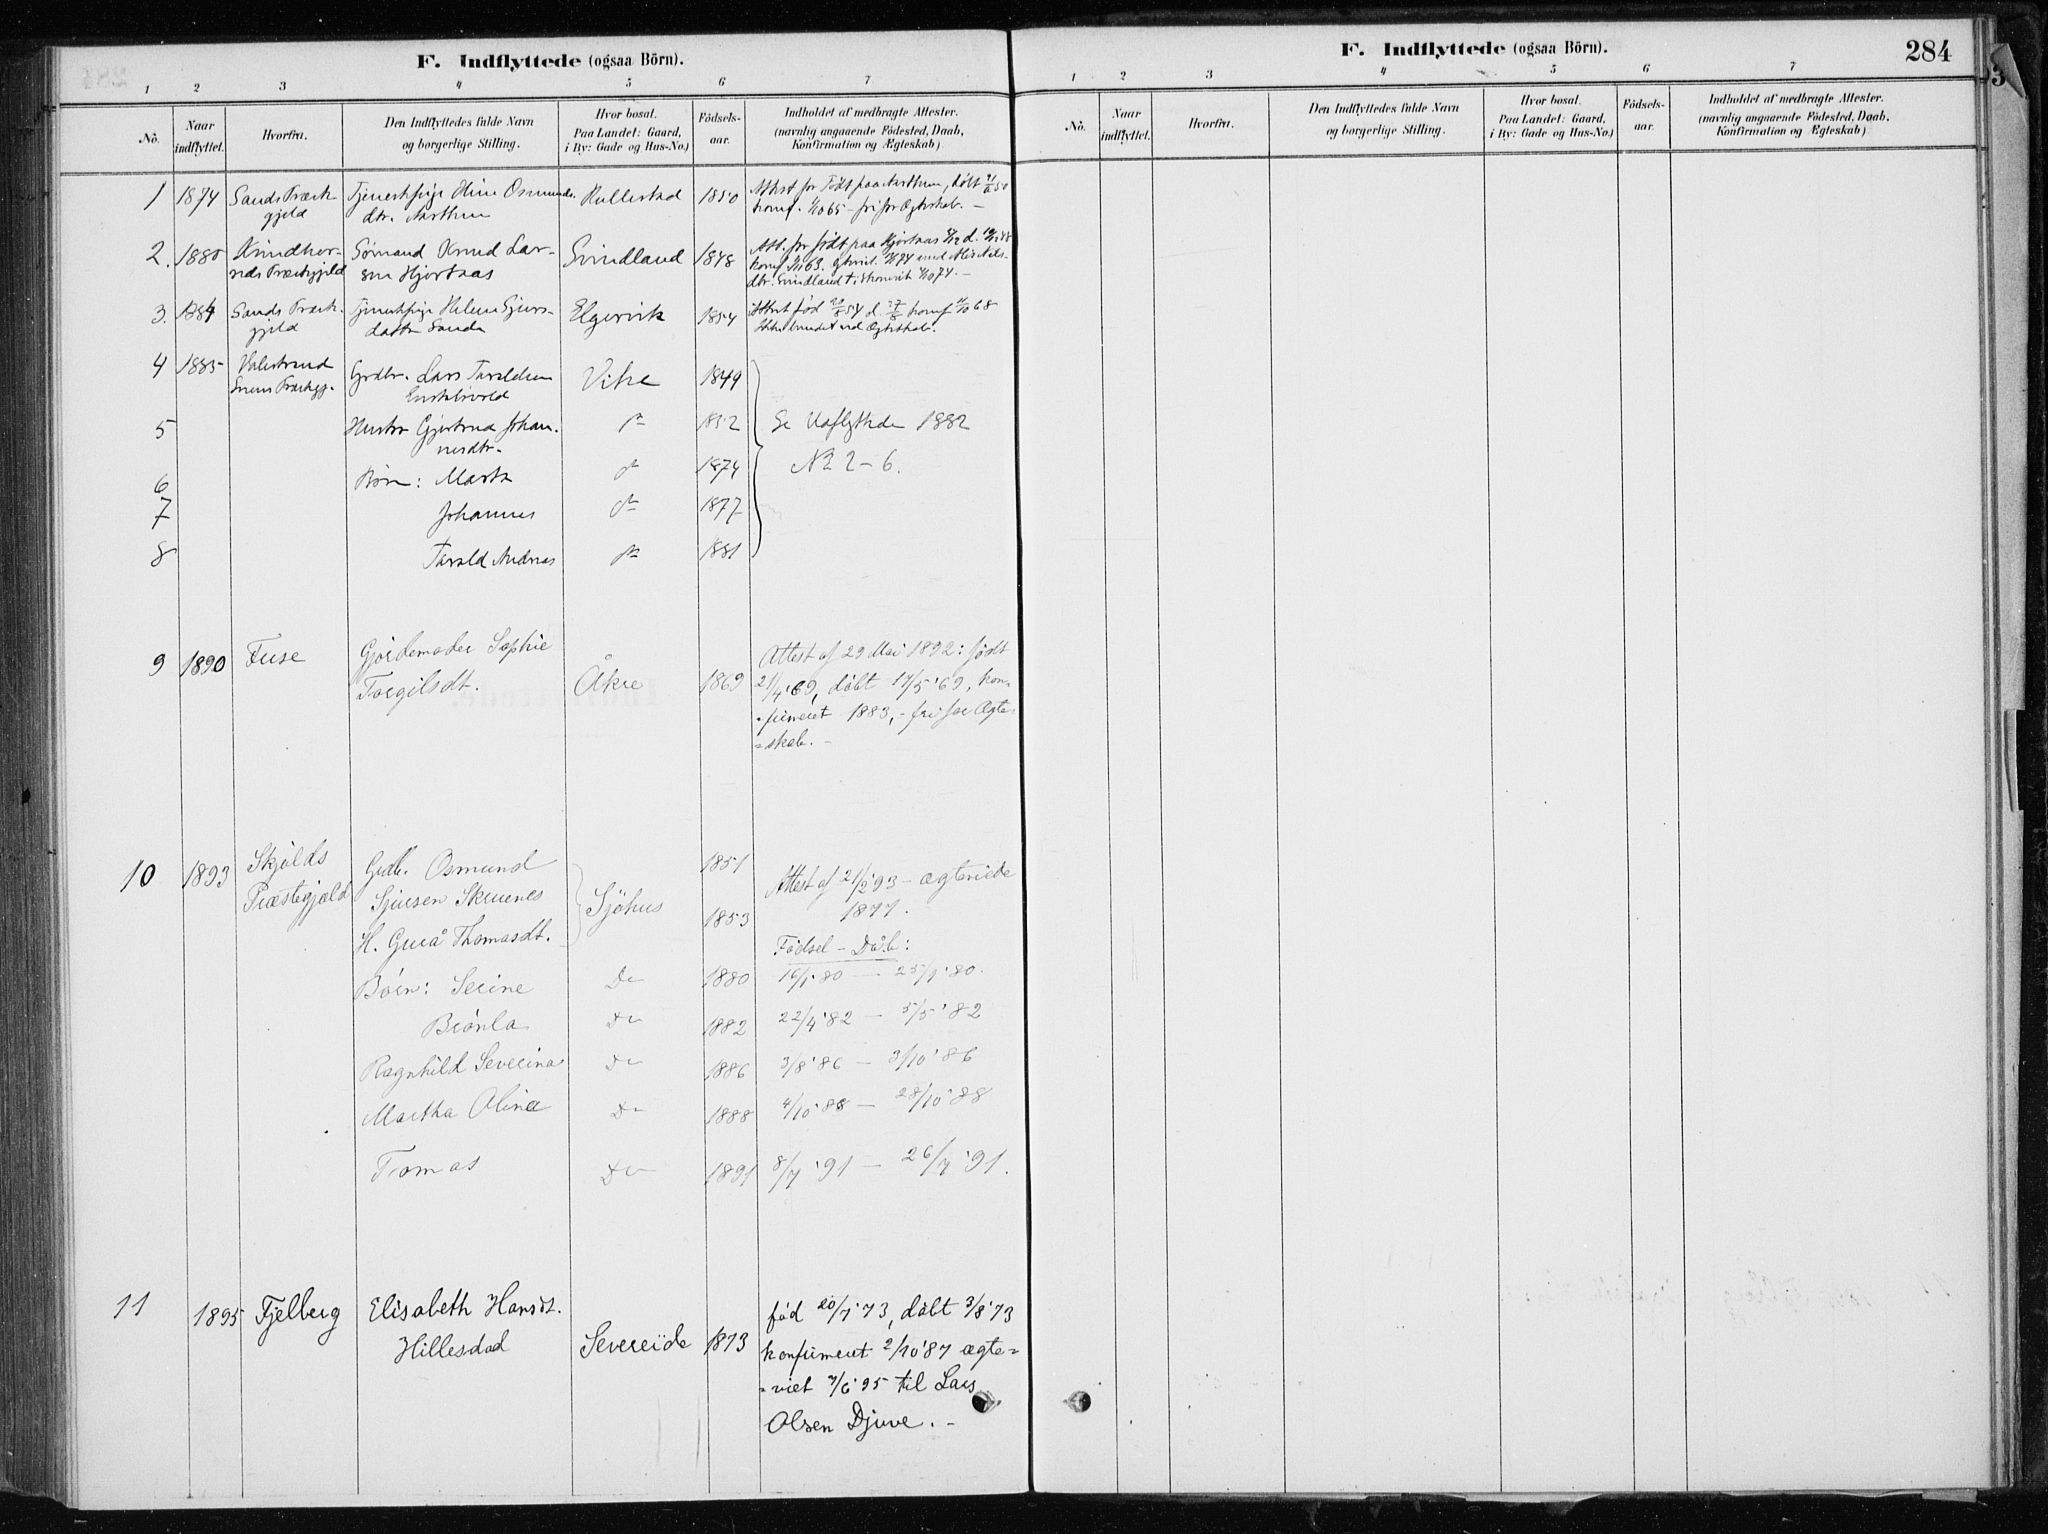 F. Indflyttede (ogsaa Börn).
1 2 3 4 5 6 7
No. Naar indflyttet. Hvorfra. Den Indflyttedes fulde Navn og borgerlige Stilling. Hvor bosat. Paa Landet: Gaard, i By: Gade og Hus-No.) Födsels-aar. Indholdet af medbragte Attester. (navnlig angaaende Födested, Daab, Konfirmation og Ægteskab)
1 1874 Sands Præste- Tjenestpige Osmunds. Rullestad 1850 Attest for Født paa Aarthun, døbt
gjeld dtr. Aarthun konf. 65 - fri for Ægteskab. -
2. 1880 Kvindher- Sømand Knud Lar- Svindland 1848 Att. for født paa Hjortaas
reds Præstegjeld sen Hjortaas konf. 63.
dtr. Svindland i 74. -
3. 1884 Sands Præste- Tjenestpige Helene Sjurs- Elgervik 1854 Attest født 54 d. konf 68
gjeld datter Sande Ikke bundet ved Ægteskab.
4 1885 Valestrand Grdbr. Lars Taraldsen Vike 1849
Præstegj.
5 Hustru Gjertrud Johan- 1852 Se Udflyttede 1882
nesdtr. No 2-6.
6 Børn: Marta 1874
7 Johannes 1877
8 Tarald Andreas 1881
9 1890 Fuse Gjordemoder Sophie Attest af 29 Mai 1892: født
Torgilsdt. Åkre 1869 21/4 '69, døbt 17/5 '69, kon-
-firmeret 1883, - fri for Ægte-
=skab. -
10 1893 Skjolds Gdb. Osmund 1851 Attest af 21/2 '93 - ægteviede
Præstegjæld Sjursen Skeienes Sjöhus 1853 1877.
H. Guró Thomasdt. Fødsel - Dåb:
Børn: Serine Do 1880 16/1 '80 - 25/1 '80.
Brønla Do 1882 22/4 '82 - 5/5 '82
Ragnhild Severina Do 1886 3/8 '86 - 3/10 '86
Martha Oline Do 1888 4/10 '88 - 28/10 '88
Tomas Do 1891 8/7 '91 - 26/7 '91.
11 1895 Fjelberg Elisabeth Hansdt. født 20/7 '73, døbt 3/8 '73
Hillestad Severeide 1873 konfirmeret 2/10 '87 ægte=
=viet 7/6 '95 til Lars
Olsen Djuve. -
F. Indflyttede (ogsaa Börn).
284
1 2 3 4 5 6 7
No. Naar indflyttet. Hvorfra. Den Indflyttedes fulde Navn og borgerlige Stilling. Hvor bosat. Paa Landet: Gaard, i By: Gade og Hus-No.) Födsels-aar. Indholdet af medbragte Attester. (navnlig angaaende Födested, Daab, Konfirmation og Ægteskab)